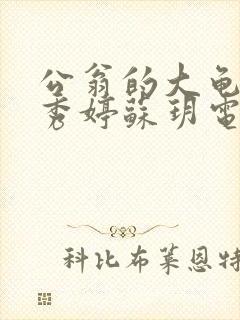 公翁的大龟
秀婷蘇玥電
科比布莱恩特